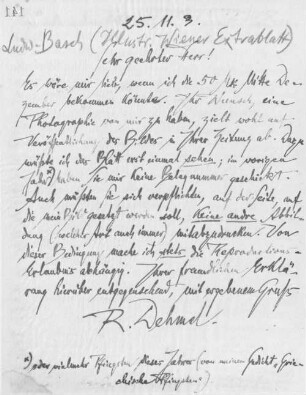 141
25. 11. 3.
Ludw. Basch (Illustr. Wiener Extrablatt)
Sehr geehrter Herr!
Es wäre mir lieb, wenn ich die 50 Mk Mitte De-
zember bekommen könnte. Ihr Wunsch, eine
Photographie von mir zu haben, zielt wohl auf
Veröffentlichung des Bildes in Ihrer Zeitung ab. Dazu
müßte ich das Blatt erst einmal sehen; im vorigen
Jahr*) haben Sie mir keine Belegnummer geschickt.
Auch müßten Sie sich verpflichten, auf der Seite, auf
die mein Bild gesetzt werden soll, keine andre Abbil-
dung (welcher Art auch immer) mitabzudrucken. Von
dieser Bedingung mache ich stets die Reproductions-
Erlaubnis abhängig. Ihrer freundlichen Erklä-
rung hierüber entgegensehend, mit ergebenem Gruß
R. Dehmel.
*) oder vielmehr Pfingsten dieses Jahres (von meinem Gedicht „Grie-
chische Pfingsten").